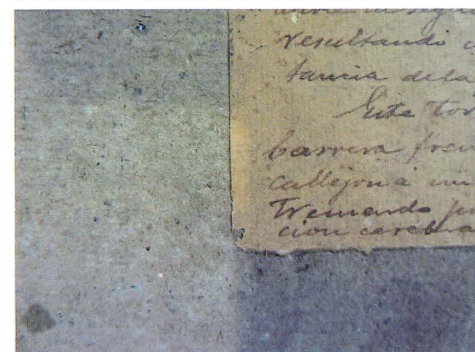 resultando
tancia de la
Este tor
barrera fren
callejon a un
Tremenda
cion cerebra